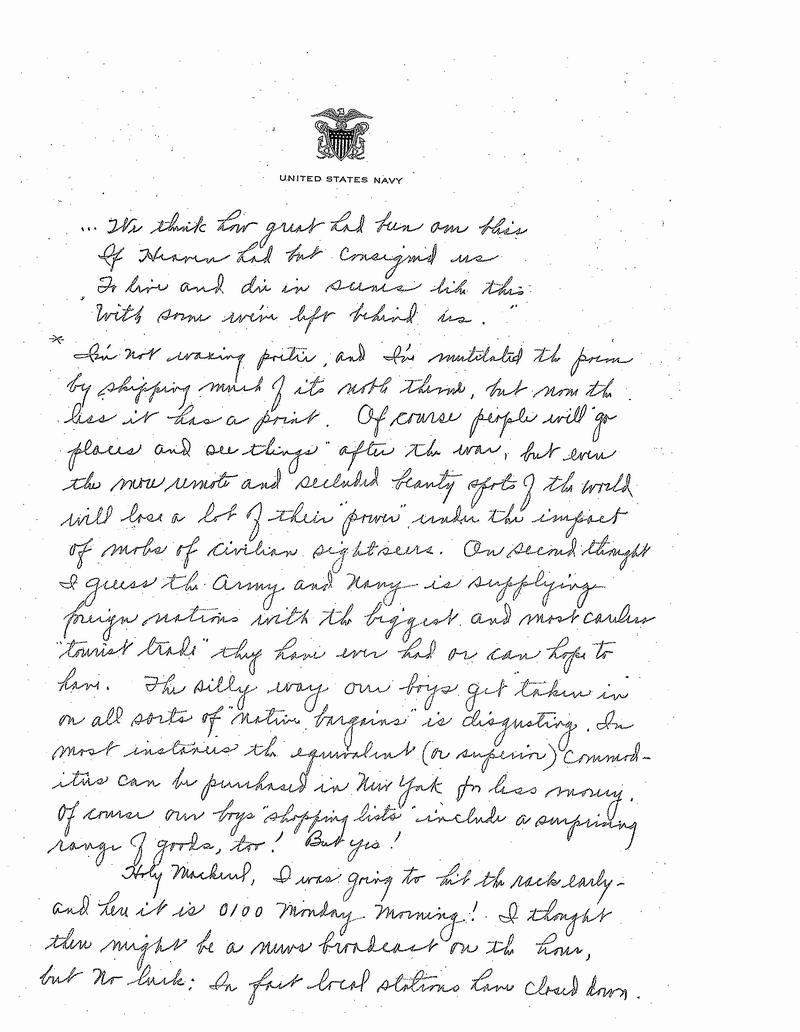 UNITED STATES NAVY
... We think how great had been our bliss
If Heaven had but consigned us
To live and die in scenes like this
With some we've left behind us."
* I'm not waxing poetic, and I've mutilated the poem
by skipping much of its noble theme, but none the
less it has a point. Of course people will "go
places and see things" after the war, but even
the more remote and secluded beauty spots of the world
will lose a lot of their "power" under the impact
of mobs of civilian sightseers. On second thought
I guess the Army and Navy is supplying
foreign nations with the biggest and most careless
"tourist trade" they have ever had or can hope to
have. The silly way our boys get "taken in"
on all sorts of "native bargains" is disgusting. In
most instances the equivalent (or superior) commod-
ities can be purchased in New York for less money.
Of course our boys "shopping lists" include a surprising
range of goods, too! But yes!
Holy Mackerel, I was going to hit the rack early-
and here it is 0100 Monday Morning! I thought
there might be a news broadcast on the hour,
but No luck: In fact local stations have closed down.